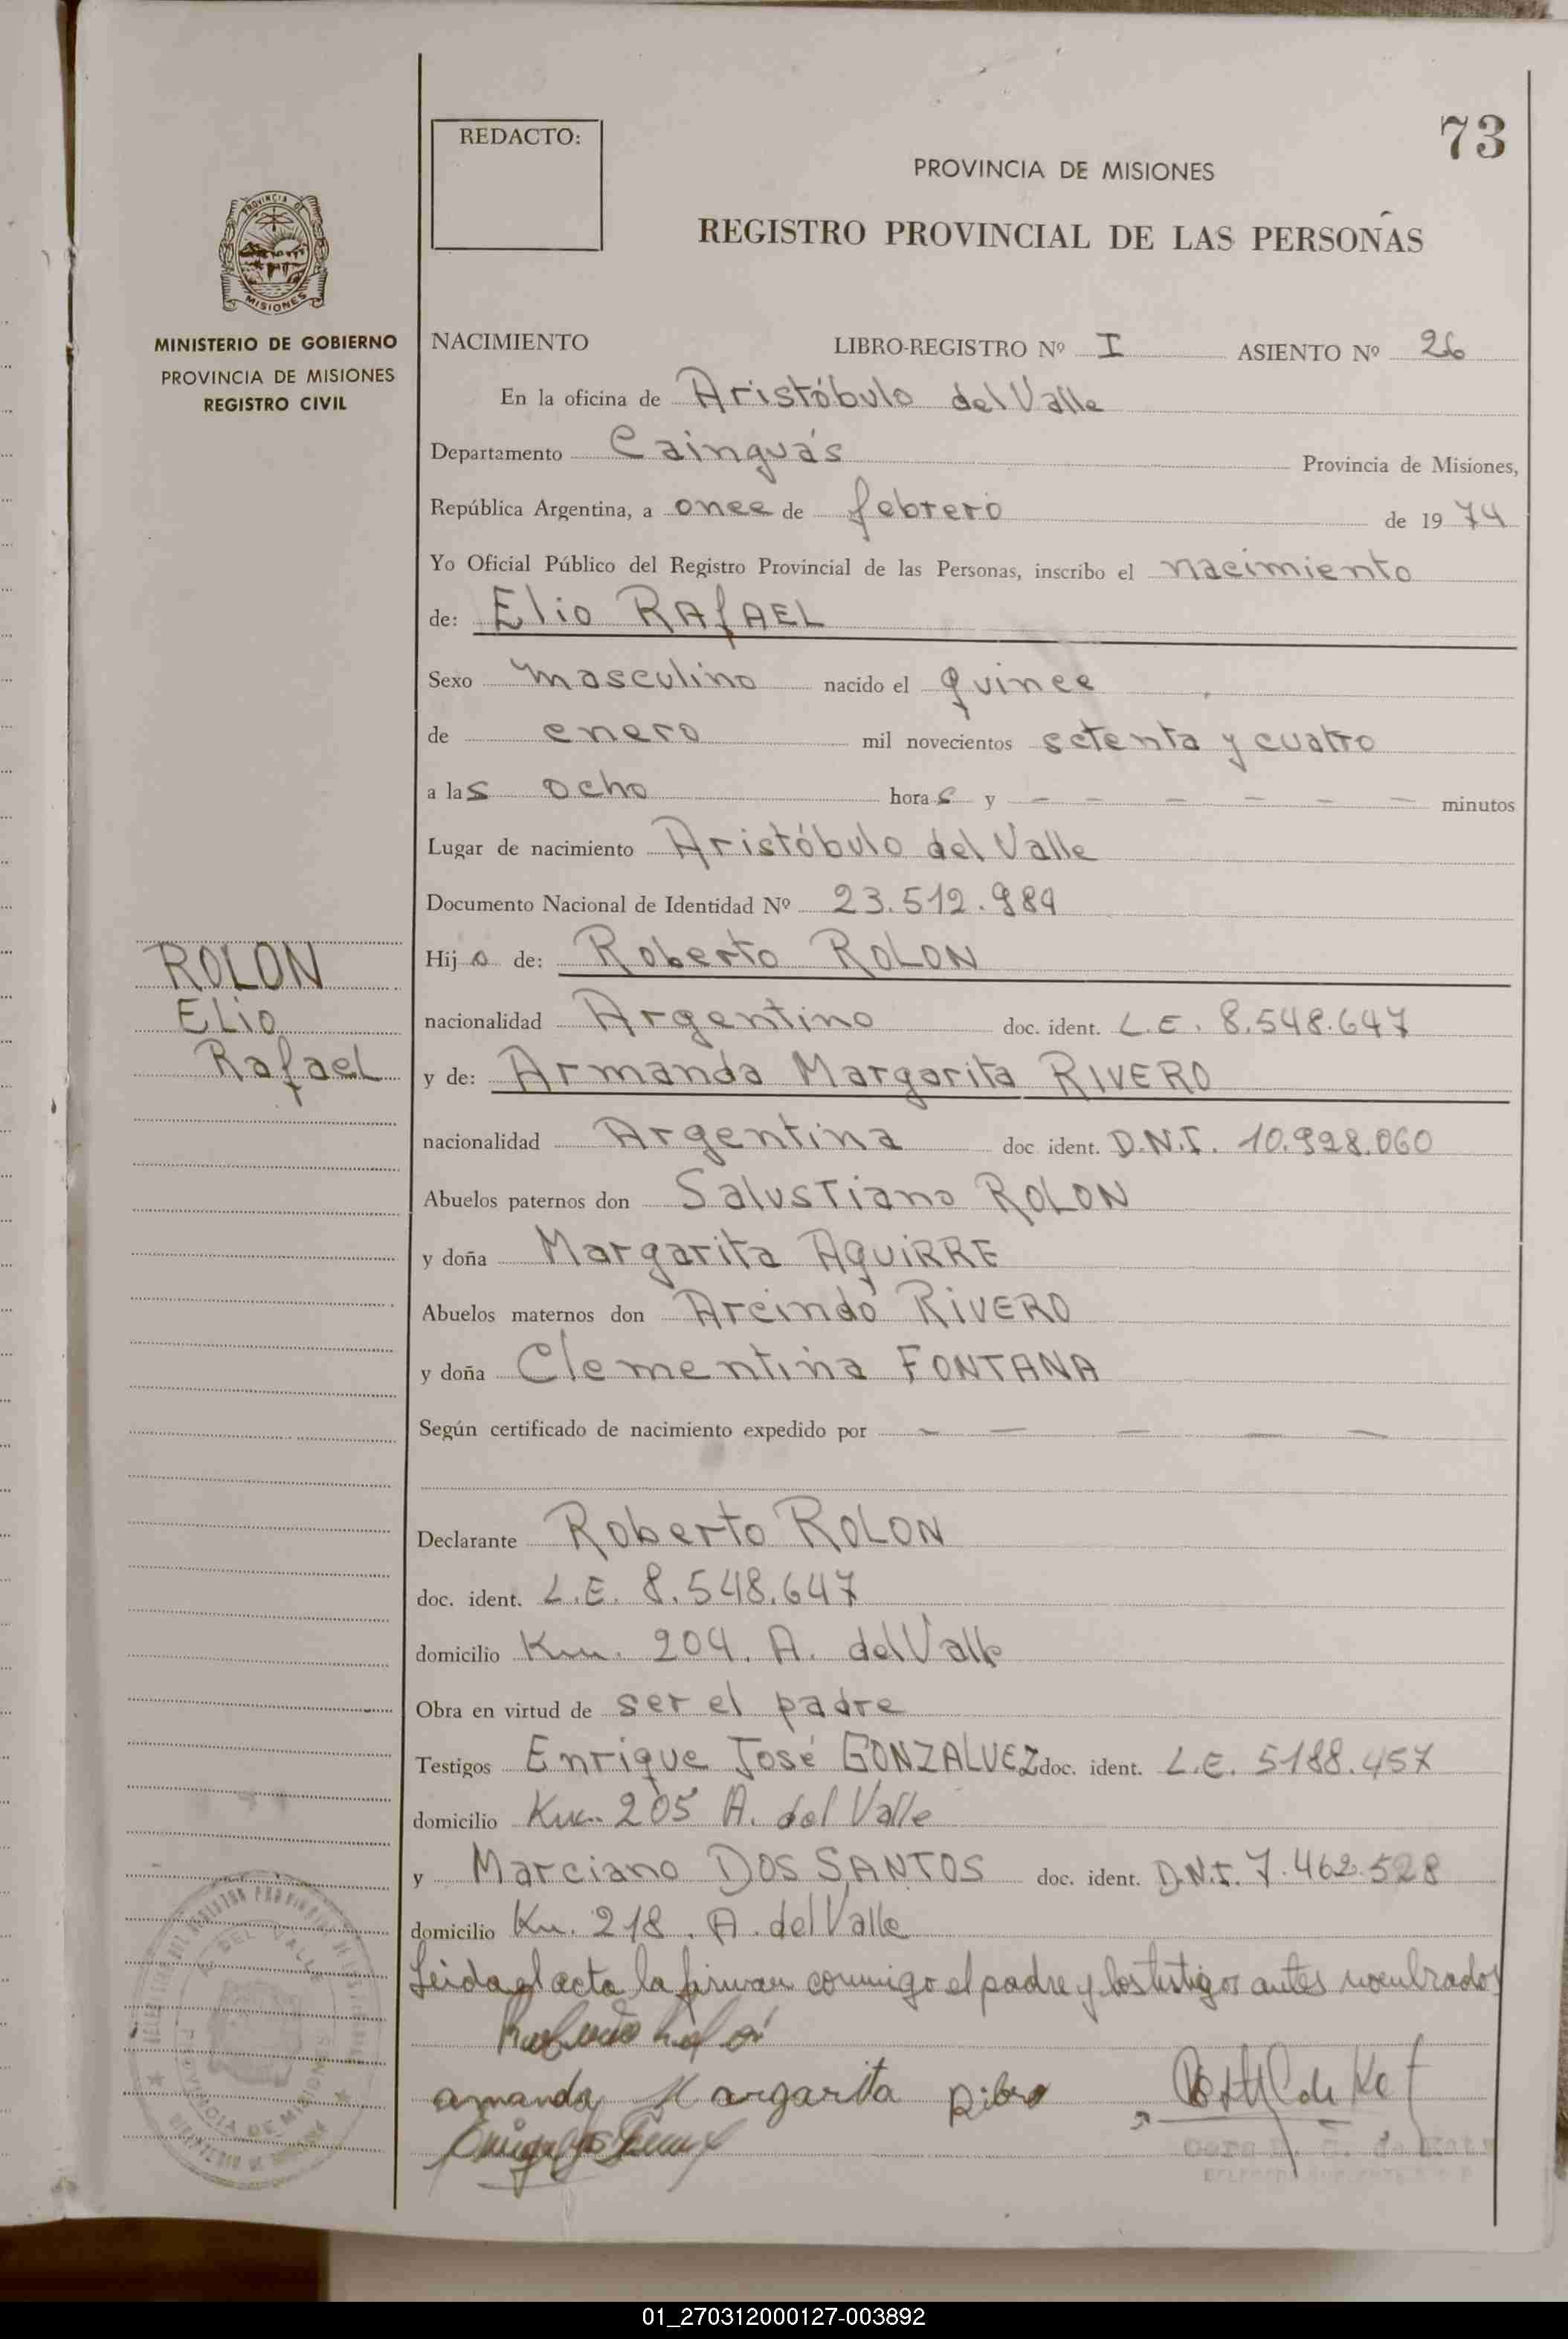 73
REDACTO:
PROVINCIA DE MISIONES
REGISTRO PROVINCIAL DE LAS PERSONAS
PROVINCIA DE
MISIONES
MINISTERIO DE GOBIERNO
PROVINCIA DE MISIONES
REGISTRO CIVIL
NACIMIENTO LIBRO-REGISTRO Nº I ASIENTO Nº 26
En la oficina de Aristóbulo del Valle
Departamento Cainguás Provincia de Misiones,
República Argentina, a once de febrero de 1974
Yo Oficial Público del Registro Provincial de las Personas, inscribo el nacimiento
de: Elio RAfAEL
Sexo masculino nacido el quince
de enero mil novecientos setenta y cuatro
a las ocho horas y — — — — — — minutos
Lugar de nacimiento Aristóbulo del Valle
Documento Nacional de Identidad Nº 23.512.989
ROLON
Elio
Rafael
Hijo de: Roberto ROLON
nacionalidad Argentino doc. ident. L.E. 8.548.647
y de: Armanda Margarita RIVERO
nacionalidad Argentina doc ident. D.N.I. 10.928.060
Abuelos paternos don Salustiano ROLON
y doña Margarita AguiRRE
Abuelos maternos don Arcindo RiVERO
y doña Clementina FONTANA
Según certificado de nacimiento expedido por — — — — —
Declarante Roberto ROLON
doc. ident. L.E. 8.548.647
domicilio Km. 204. A. del Valle
Obra en virtud de ser el padre
Testigos Enrique José GONZALVEZ doc. ident. L.E. 5188.457
domicilio Km. 205 A. del Valle
y Marciano DOS SANTOS doc. ident. D.N.I. 7.462.528
domicilio Km. 218. A. del Valle
Leida el acta la firman conmigo el padre y los testigos antes nombrados
amanda Margarita Ribro
A. DEL VALLE
PROVINCIA DE MISIONES
01_270312000127-003892